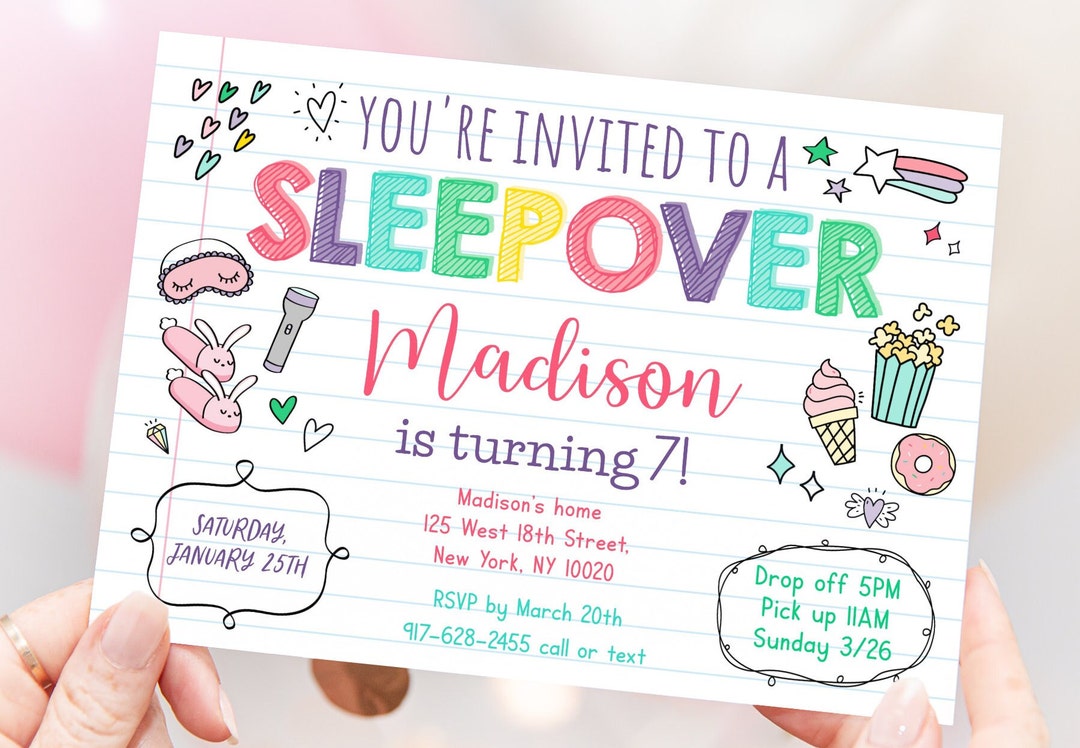 YOU'RE INVITED TO A
SLEEPOVER
Madison
is turning 7!
Madison's home
125 West 18th Street,
New York, NY 10020
RSVP by March 20th
917-628-2455 call or text
SATURDAY,
JANUARY 25TH
Drop off 5PM
Pick up 11AM
Sunday 3/26